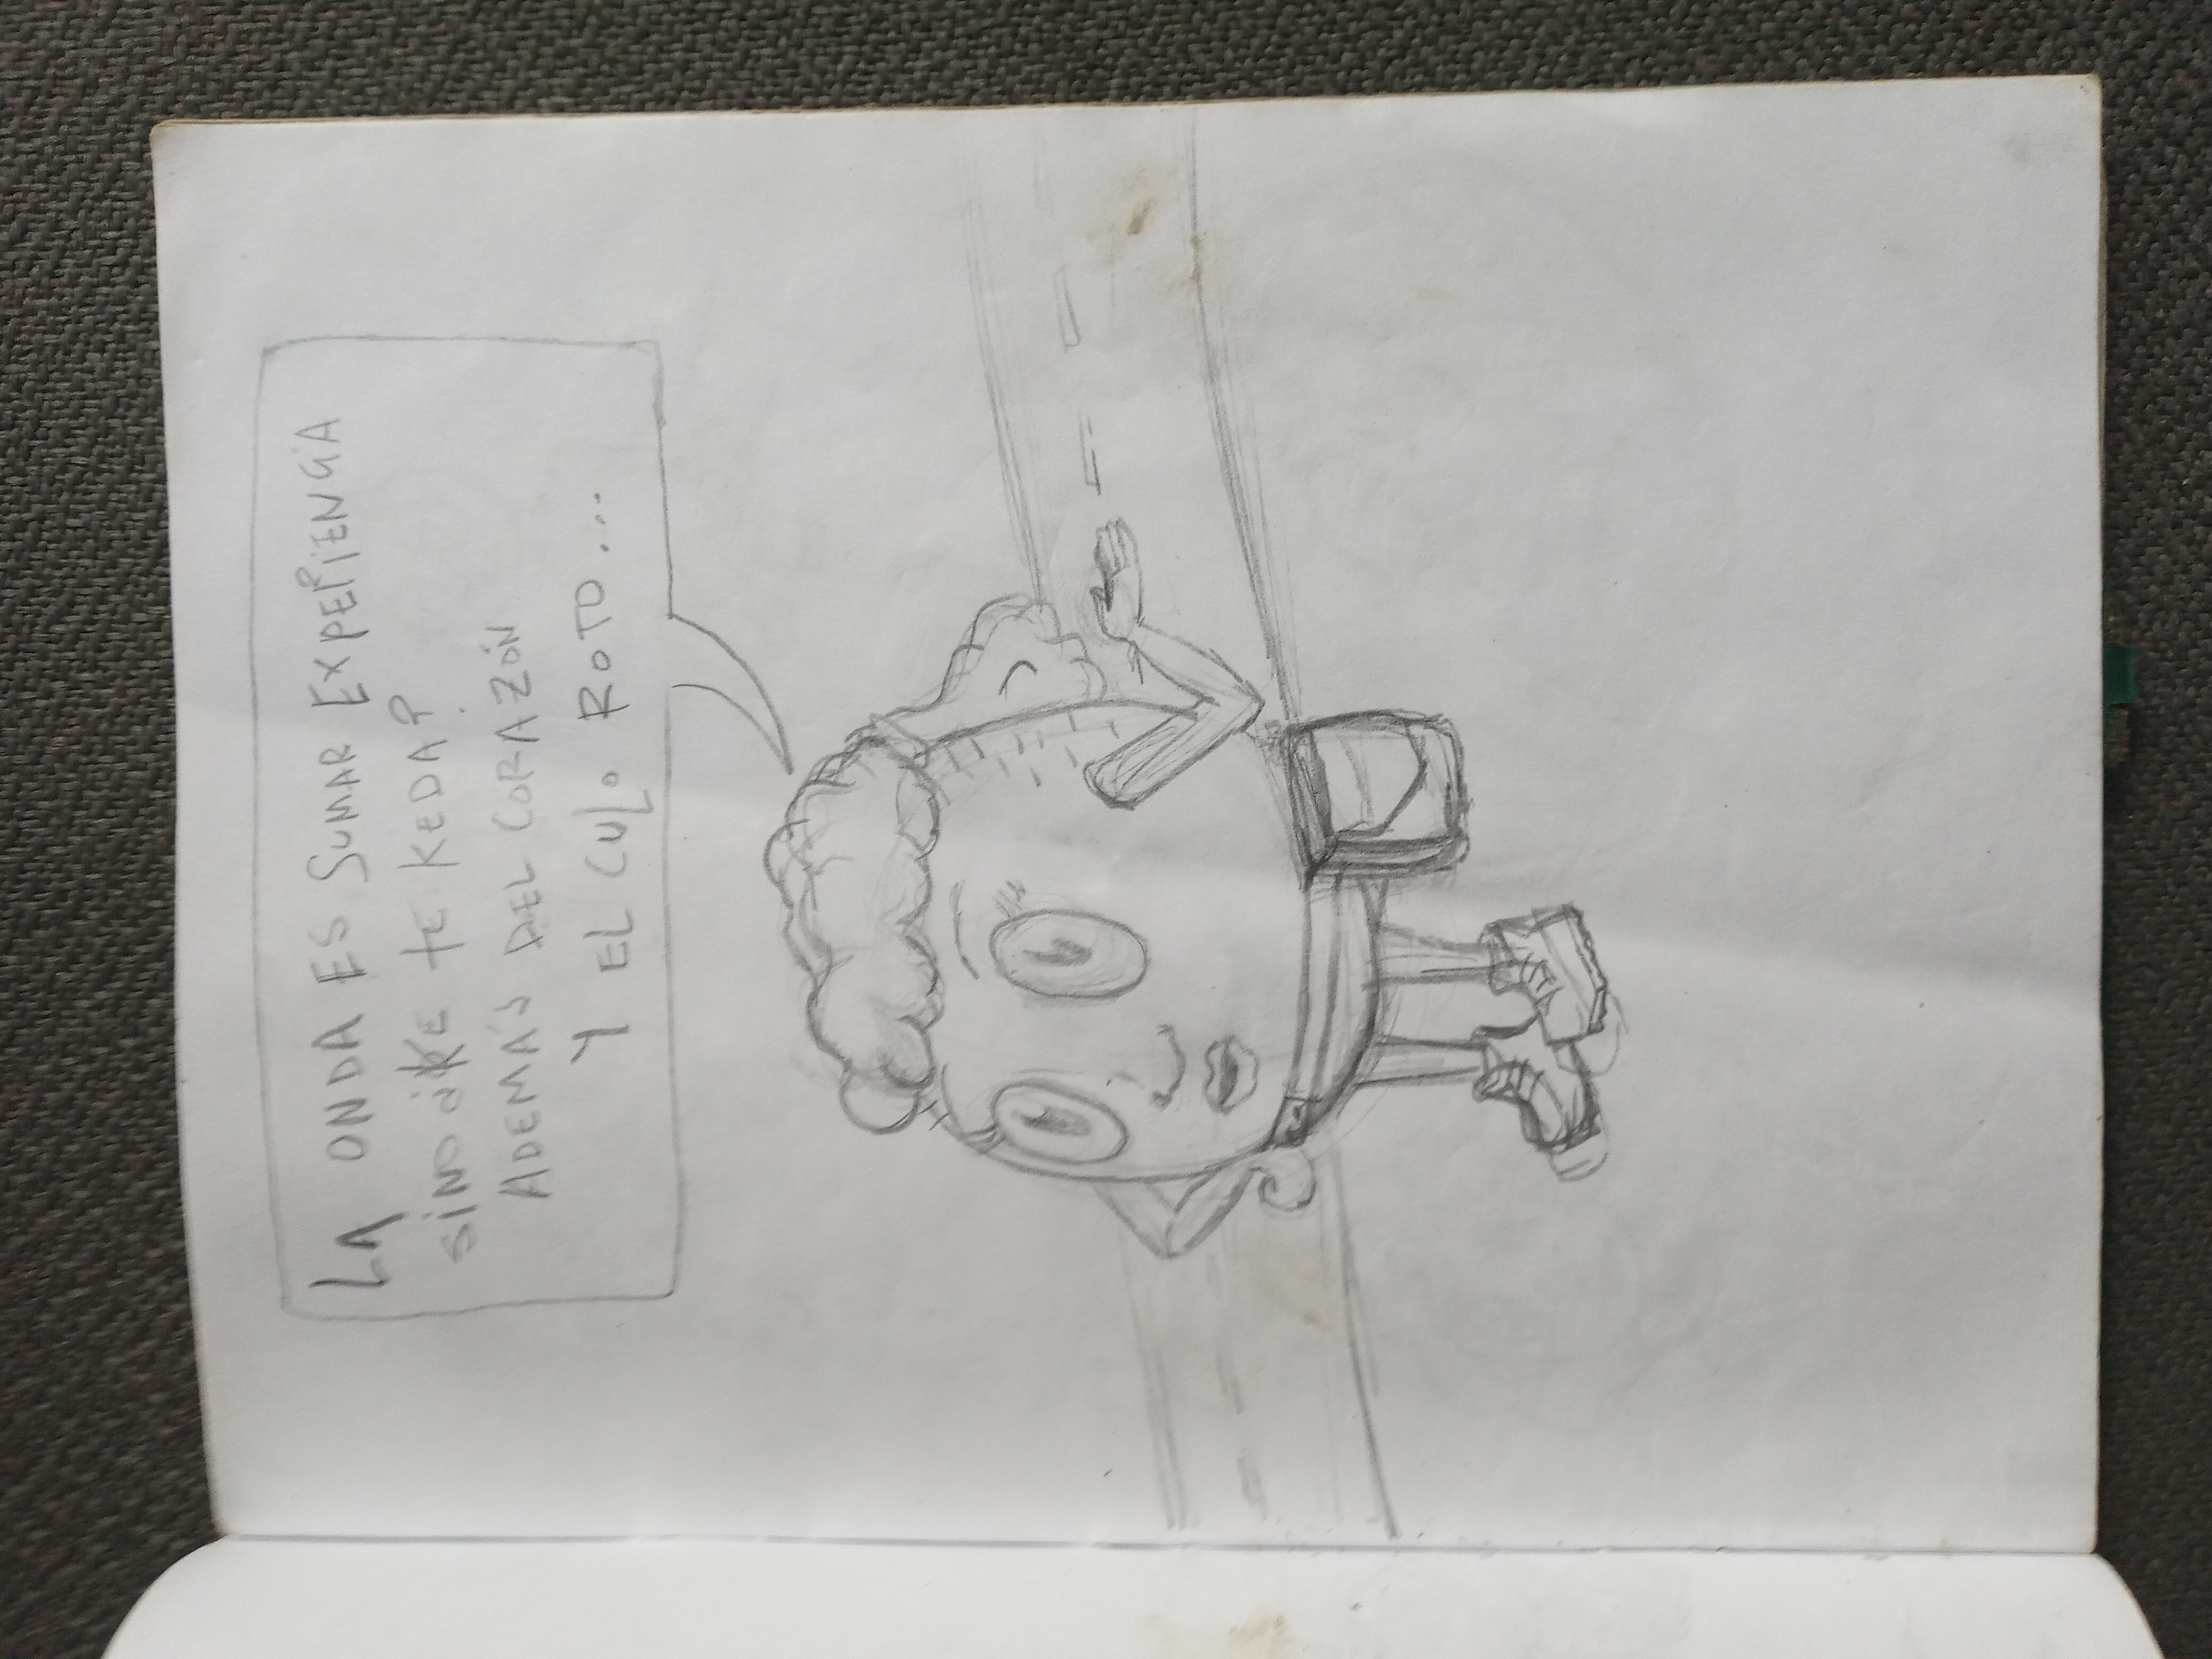 LA ONDA ES SUMAR EXPERIENCIA
SINO KE TE KEDA?
ADEMÁS DEL CORAZÓN
Y EL CULO ROTO...